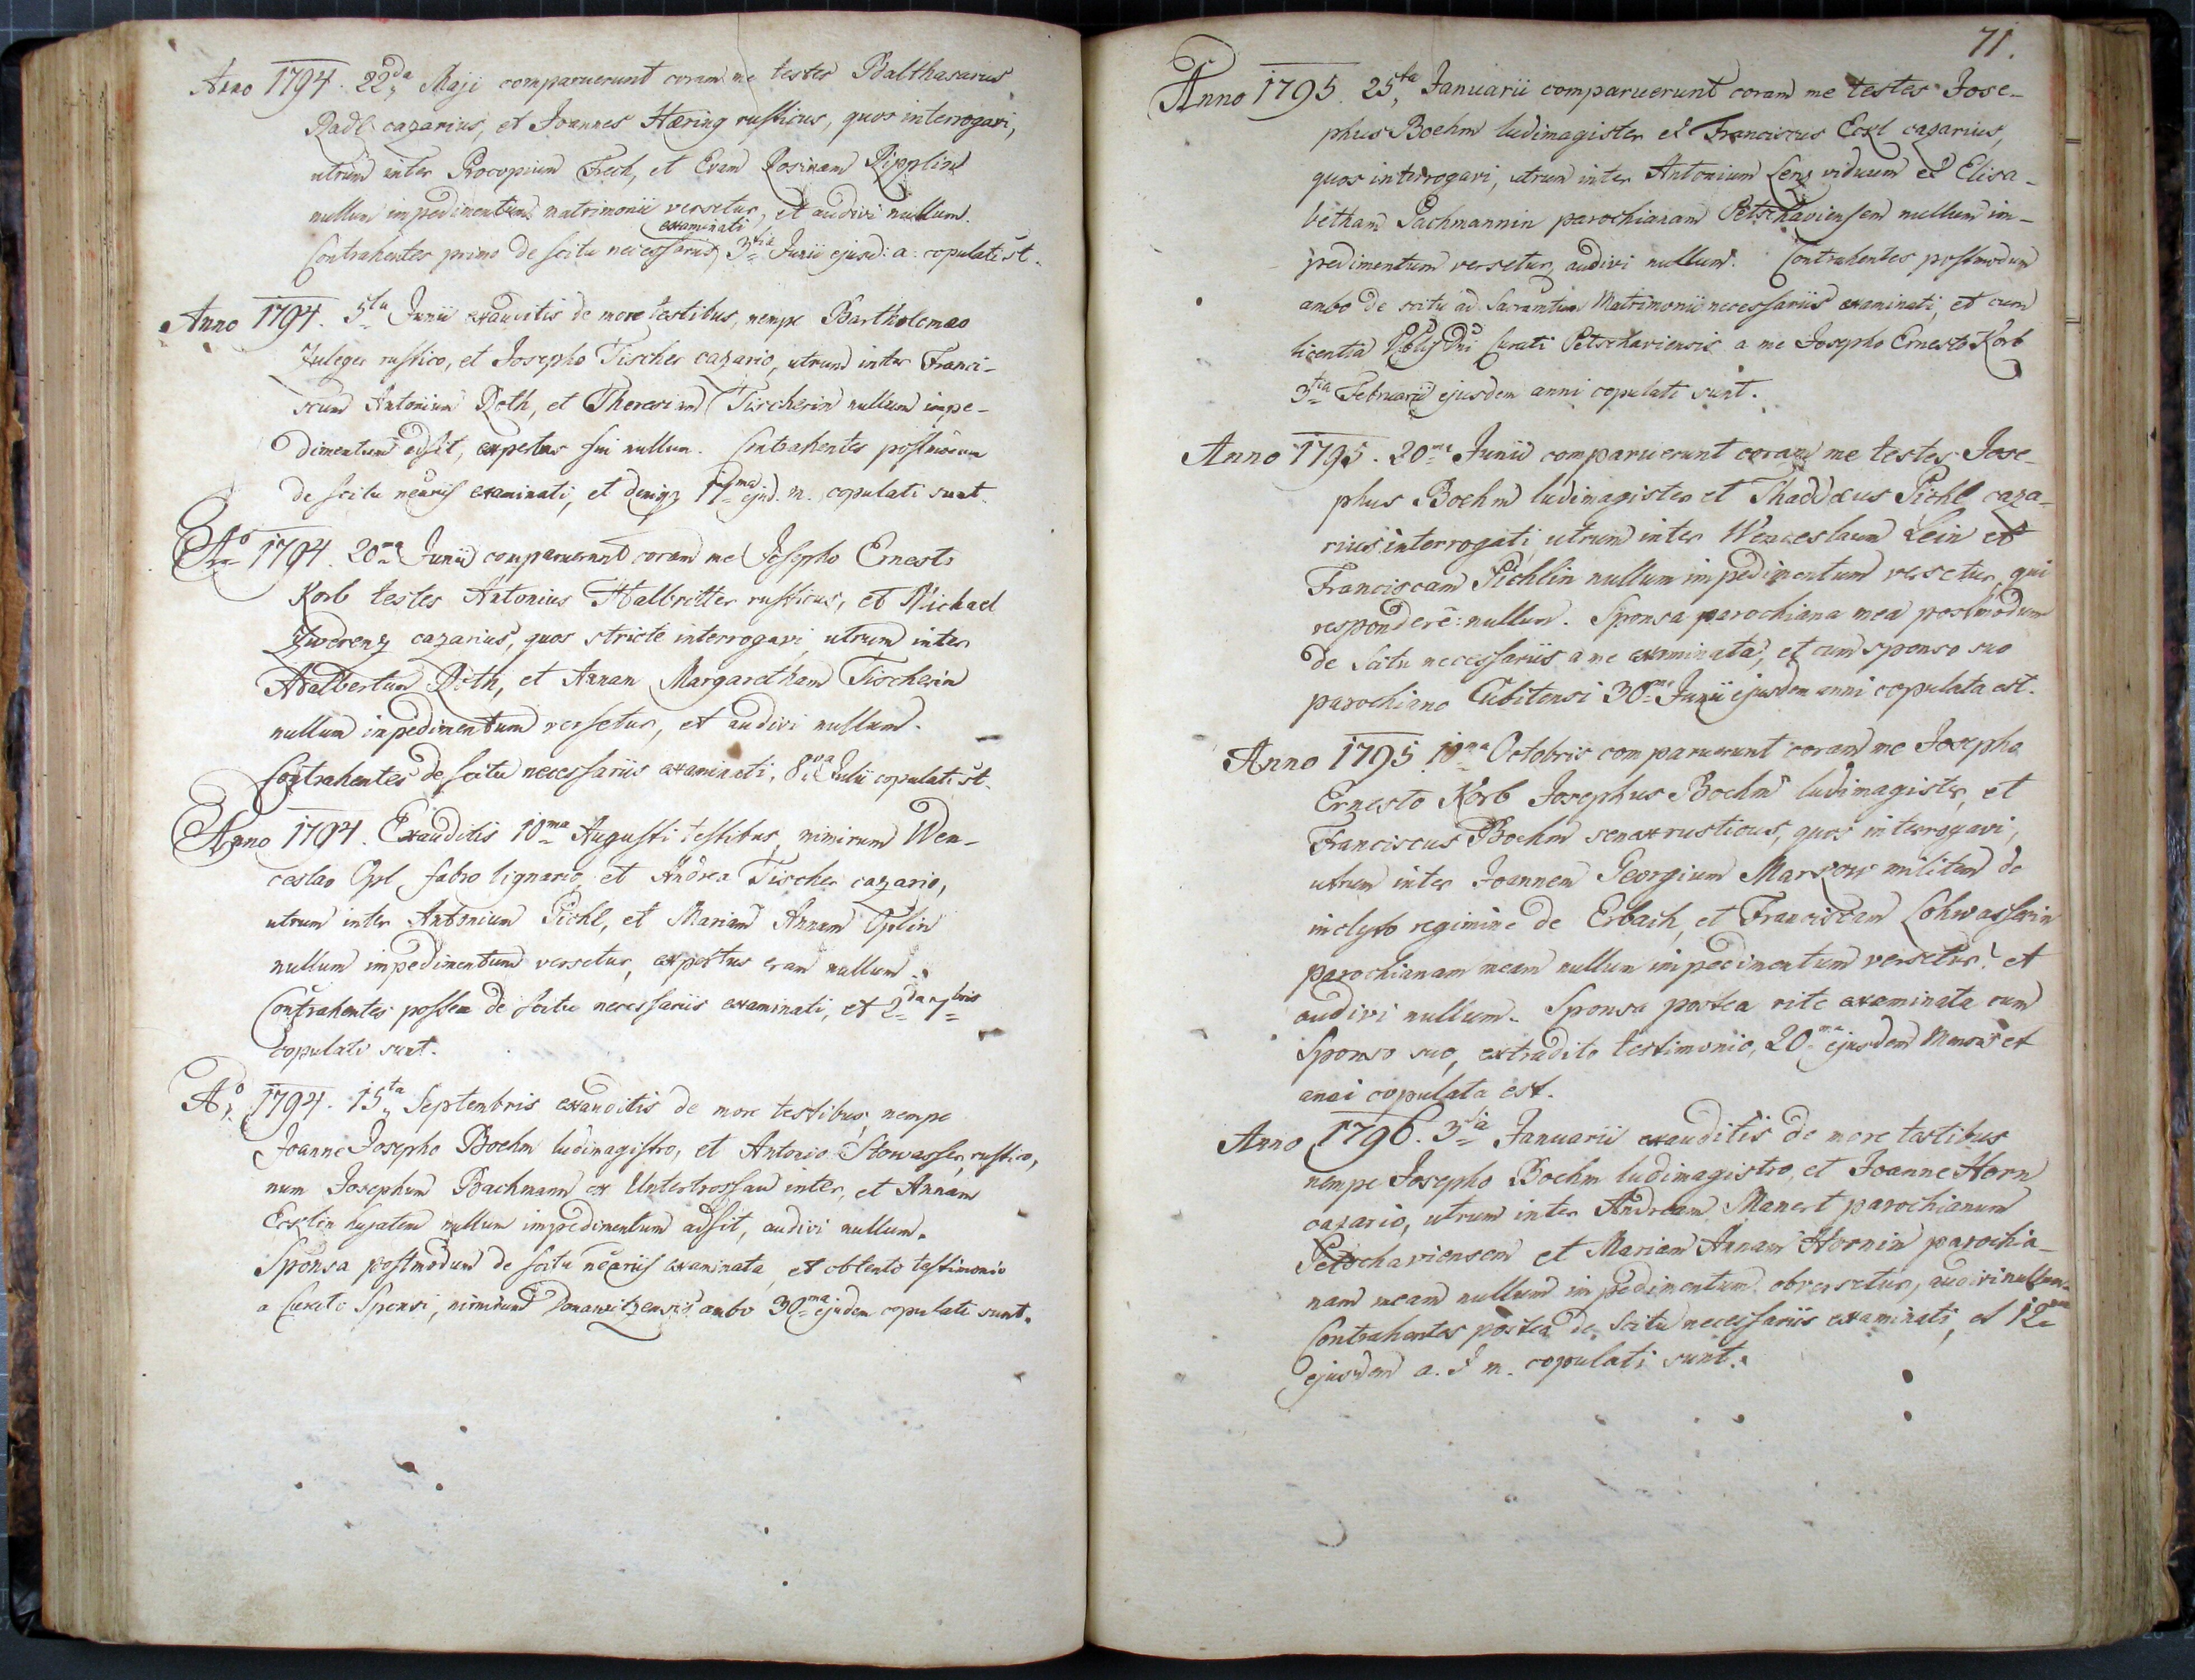 Anno 1794. 22da Maji comparuerunt coram me testes Balthasarus
Radl cazarius, et Joannes Hæring rusticus, quos interrogavi,
utrum inter Procopium Fech, et Evam Rosinam Ripplin
nullum impedimentum matrimonii versetur, et audivi nullum.
examinati
Contrahentes primo de scitu necessariis 3tia Junii ejusd: a: copulati st.
Anno 1794. 5ta Junii exauditis de more testibus, nempe Bartholomæo
Zuleger rustico, et Josepho Tischer cazario, utrum inter Franci-
scum Antonium Roth, et Theresiam Tischerin nullum impe-
dimentum adsit, expertus fui nullum. Contrahentes postmodum
de scitu necariis examinati, et denique 17ma ejusd. m. copulati sunt.
Ao 1794. 20ma Junii comparuerunt coram me Josepho Ernesto
Korb testes Antonius Halbritter rusticus, et Michael
Zwerenz cazarius, quos stricte interrogavi utrum inter
Adalbertum Roth, et Annam Margaretham Tischerin
nullum impedimentum versetur, et audivi nullum.
Contrahentes de scitu necessariis examinati, 8va Julii copulati st.
Anno 1794. Exauditis 10ma Augusti testibus, nimirum Wen-
ceslao Opl fabro lignario, et Andrea Tischer cazario,
utrum inter Antonium Pichl, et Mariam Annam Oplin
nullum impedimentum versetur, expertus eram nullum.
Contrahentes postea de scitu necessariis examinati, et 2da 7bris
copulati sunt.
Ao 1794. 15ta Septembris exauditis de more testibus, nempe
Joanne Josepho Boehm ludimagistro, et Antonio Stowasser rustico,
num Josephum Bachmann ex Untertrossau inter, et Annam
Ecklin hujatem nullum impedimentum adsit, audivi nullum.
Sponsa postmodum de scitu necariis examinata, et obtento testimonio
a Curato Sponsi, nimirum Donawitzensis ambo 30ma ejusdem copulati sunt.
71.
Anno 1795. 25ta Januarii comparuerunt coram me testes Jose-
phus Boehm ludimagister et Franciscus Eckl cazarius,
quos interrogavi, utrum inter Antonium Lenz viduum et Elisa-
betham Pachmannin parochianam Petschaviensem nullum im-
pedimentum versetur, audivi nullum. Contrahentes postmodum
ambo de scitu ad Sacramtum Matrimonii necessariis examinati, et cum
licentia Dni Curati Petschaviensis a me Josepho Ernesto Korb
3tia Februarii ejusdem anni copulati sunt.
Anno 1795. 20ma Junii comparuerunt coram me testes Jose-
phus Boehm ludimagister et Thaddæus Pichl caza-
rius interrogati, utrum inter Wenceslaum Lein et
Franciscam Pichlin nullum impedimentum versetur, qui
responderē: nullum. Sponsa parochiana mea postmodum
de scitu necessariis a me examinata, et cum sponso suo
parochiano Cubitensi 30ma Junii ejusdem anni copulata est.
Anno 1795 10ma Octobris comparuerunt coram me Josepho
Ernesto Korb Josephus Boehm ludimagister, et
Franciscus Boehm senax rusticus, quos interrogavi,
utrum inter Joannem Georgium militem de
inclyto regimine de Erbach, et Franciscam Lohwasserin
parochianam meam nullum impedimentum versetur? et
audivi nullum. Sponsa postea rite examinata cum
Sponso suo, extradito testimonio, 20ma ejusdem Mensis et
anni copulata est.
Anno 1796. 3tia Januarii exauditis de more testibus
nempe Josepho Boehm ludimagistro, et Joanne Horn
cazario, utrum inter Andream Manert parochianum
Petschaviensem et Mariam Annam Hornin parochia-
nam meam nullum impedimentum obversetur, audivi nullum.
Contrahentes postea de scitu necessariis examinati, et 12ma
ejusdem a. & m. copulati sunt.